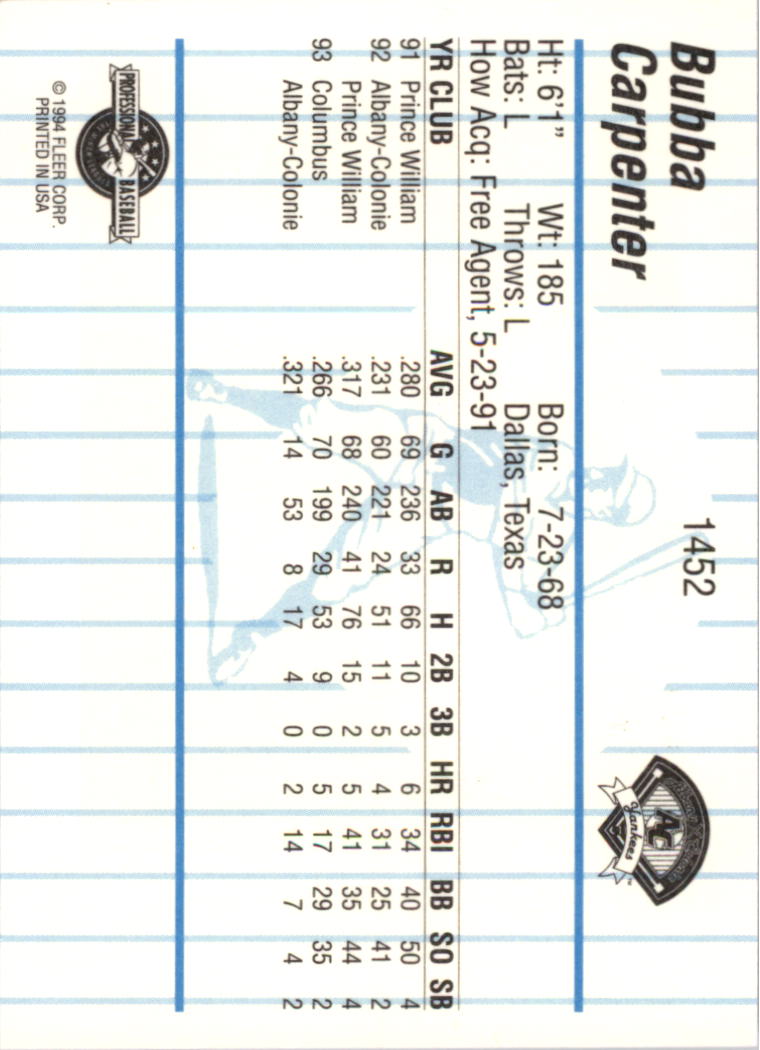 Bubba
Carpenter
1452
AC
Yankees™
Ht: 6'1" Wt: 185 Born: 7-23-68
Bats: L Throws: L Dallas, Texas
How Acq: Free Agent, 5-23-91
YR CLUB AVG G AB R H 2B 3B HR RBI BB SO SB
91 Prince William .280 69 236 33 66 10 3 6 34 40 50 4
92 Albany-Colonie .231 60 221 24 51 11 5 4 31 25 41 2
Prince William .317 68 240 41 76 15 2 5 41 35 44 4
93 Columbus .266 70 199 29 53 9 0 5 17 29 35 2
Albany-Colonie .321 14 53 8 17 4 0 2 14 7 4 2
PROFESSIONAL BASEBALL
© 1994 FLEER CORP.
PRINTED IN USA